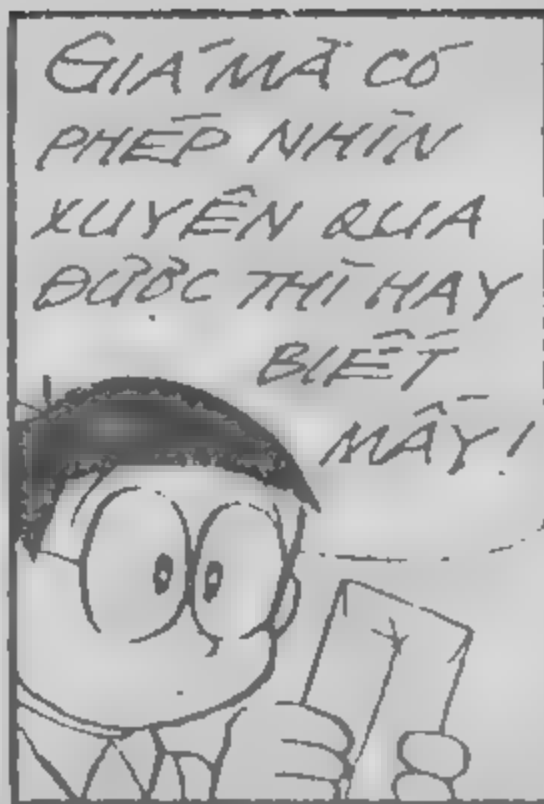 GIÁ MÀ CÓ
PHÉP NHÌN
XUYÊN QUA
ĐƯỢC THÌ HAY
BIẾT
MẤY!